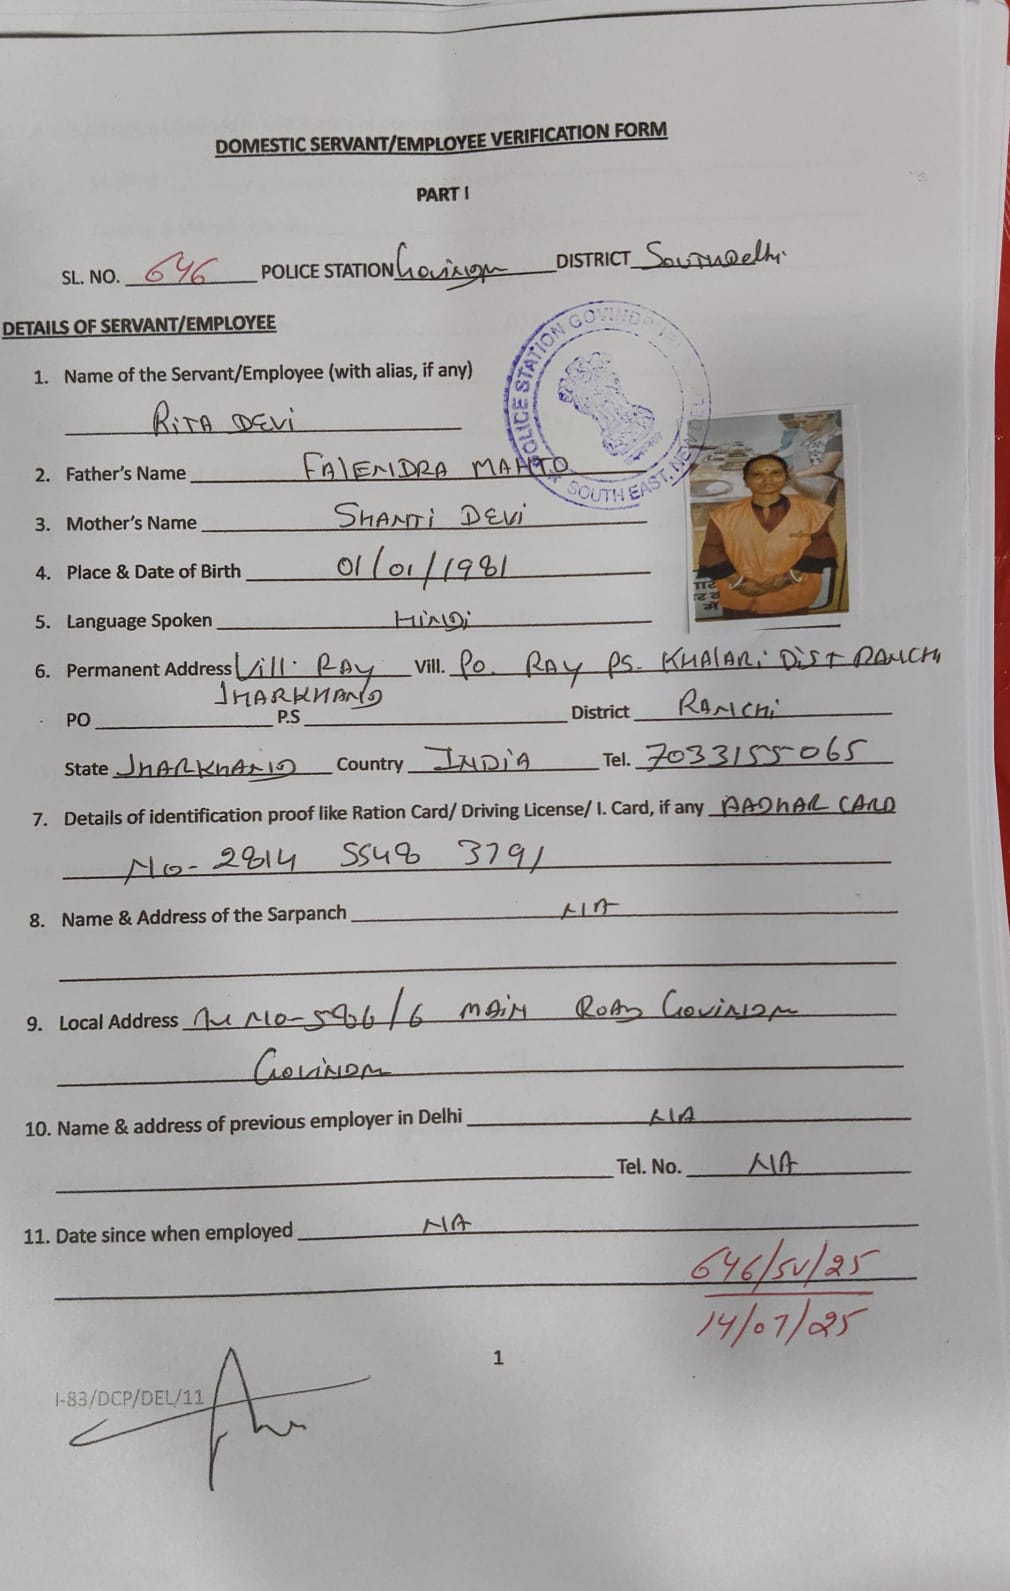 DOMESTIC SERVANT/EMPLOYEE VERIFICATION FORM
PART I
SL. NO. 646 POLICE STATION DISTRICT
DETAILS OF SERVANT/EMPLOYEE
POLICE STATION GOVINDPURI
SOUTH EAST, NEW DEL
1. Name of the Servant/Employee (with alias, if any)
RITA DEVI
2. Father's Name FALENDRA MAHTO
3. Mother's Name SHANTI DEVI
4. Place & Date of Birth 01/01/1981
5. Language Spoken HINDI
6. Permanent Address Vill. RAY Vill. PO. RAY PS. KHALARI DIST RANCHI
JHARKHAND
PO P.S District RANCHI
State JHARKHAND Country INDIA Tel. 7033155065
7. Details of identification proof like Ration Card/ Driving License/ I. Card, if any AADHAR CARD
NO- 2814 5548 3791
8. Name & Address of the Sarpanch NA
9. Local Address MAIN ROAD
10. Name & address of previous employer in Delhi NA
Tel. No. NA
11. Date since when employed NA
646/SV/25
14/07/25
1
I-83/DCP/DEL/11